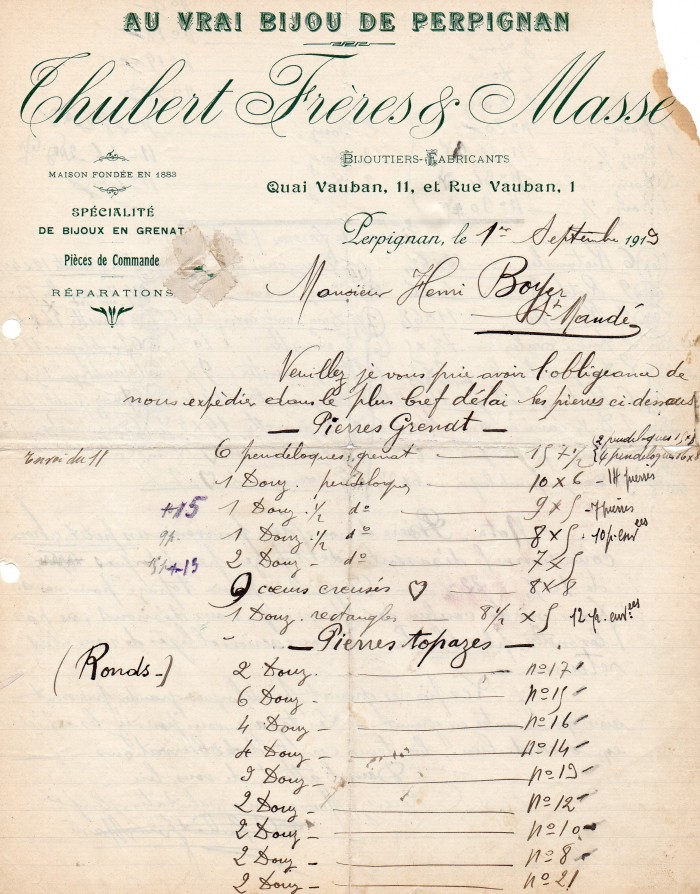 AU VRAI BIJOU DE PERPIGNAN
Thubert Frères & Masse
BIJOUTIERS-FABRICANTS
MAISON FONDÉE EN 1883
Quai Vauban, 11, et Rue Vauban, 1
SPÉCIALITÉ
DE BIJOUX EN GRENAT
Pièces de Commande
RÉPARATIONS
Perpignan, le 1er Septembre 1919
Monsieur Henri Boyer
St Mandé
Veuillez je vous prie avoir l'obligeance de
nous expédier dans le plus bref délai les pierres ci-dessous
— Pierres Grenat —
Envoi du 11 6 pendeloques grenat — 15 7 1/2 { 2 pendeloques 15 8
4 pendeloques 16 x 8
1 Douz. pendeloques 10 x 6 — 14 pierres
+15 1 Douz. 1/2 do — 9 x 5 — 7 pierres
9 p. 1 Douz. 1/2 do — 8 x 5 — 10 p. envées
+15 2 Douz — do — 7 x 5
9 cœurs creusés ♡ — 8 x 8
1 Douz. rectangles — 8 1/2 x 5 12 p. envées
— Pierres topazes —
(Ronds -) 2 Douz. — no 17
6 Douz — no 15
4 Douz — no 16
4 Douz — no 14
Douz — no 19
2 Douz — no 12
2 Douz — no 10
2 Douz — no 8
2 Douz — no 21